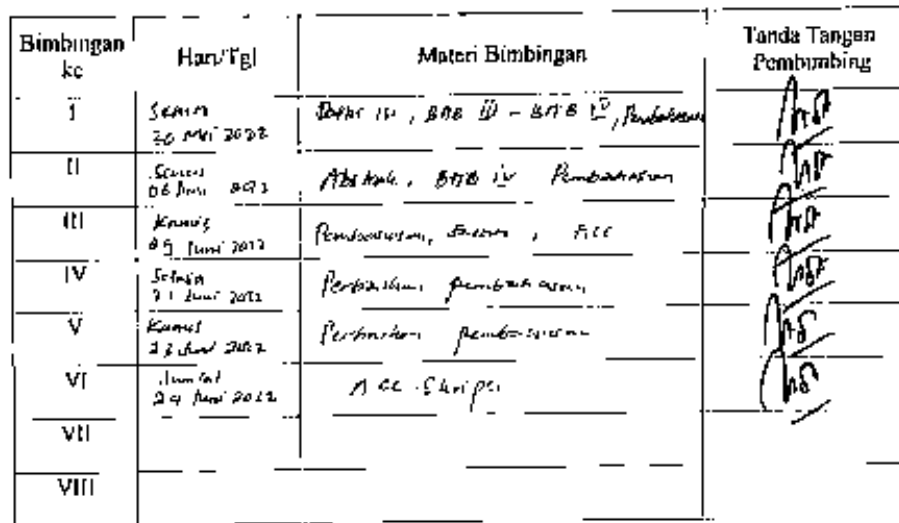 Bimbingan ke
Hari/Tgl
Materi Bimbingan
Tanda Tangan Pembimbing
I
Senin
2022
BAB IV - BAB V, Pembahasan
II
Senin
06 Juni 2022
Abstrak, BAB IV Pembahasan
III
Kamis
09 Juni 2022
Pembahasan,
IV
Selasa
21 Juni 2022
Perbaikan pembahasan
V
Kamis
23 Juni 2022
Perbaikan pembahasan
VI
Jum'at
24 Juni 2022
ACC Skripsi
VII
VIII